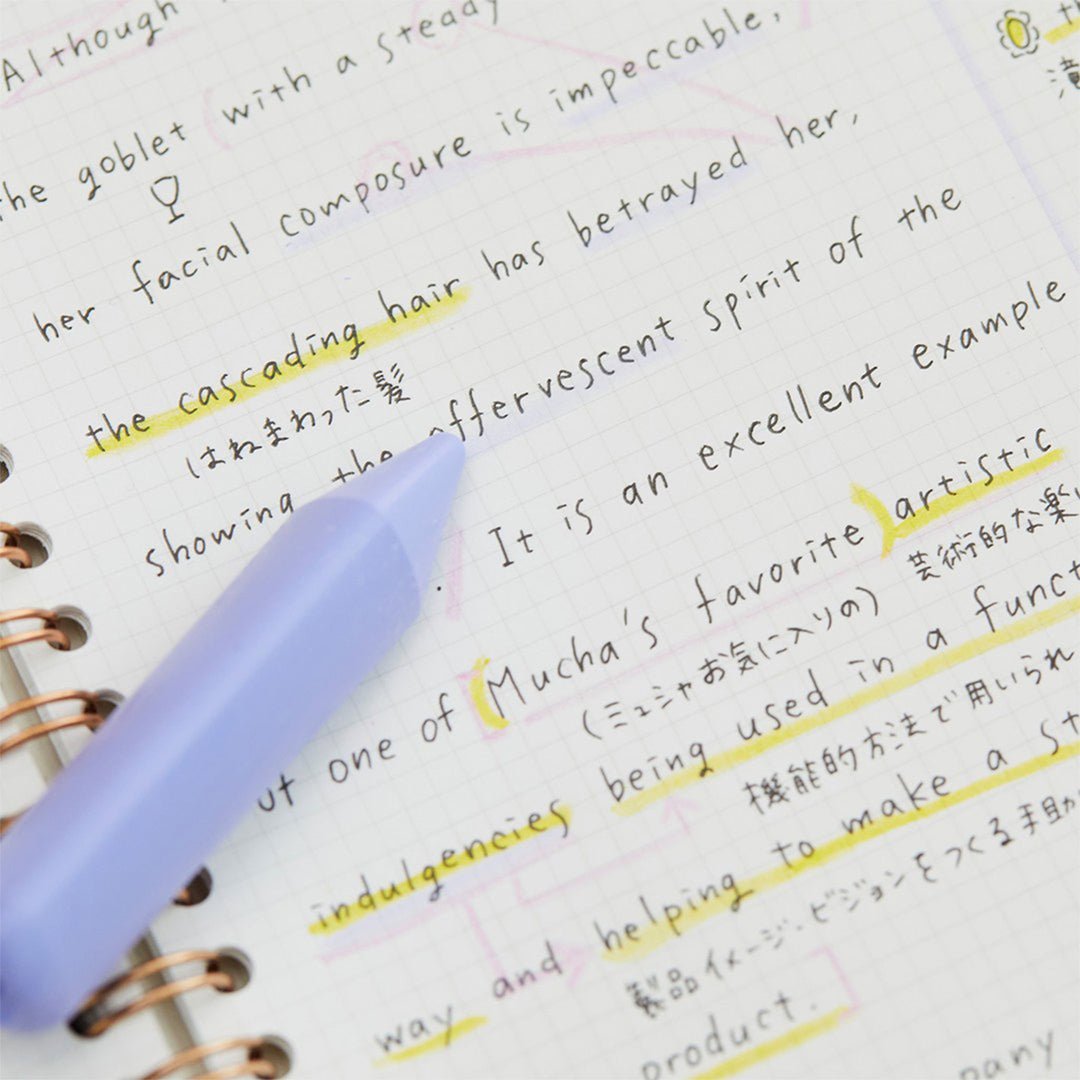 Although
the goblet with a steady
her facial composure is impeccable,
the cascading hair has betrayed her,
はねまわった髪
showing the effervescent spirit of the
. It is an excellent example
one of (Mucha's favorite) artistic
(ミュシャお気に入りの) 芸術的な楽し
indulgencies being used in a funct
機能的方法で用いられ
way and helping to make a st
製品イメージ・ビジョンをつくる手助
product.